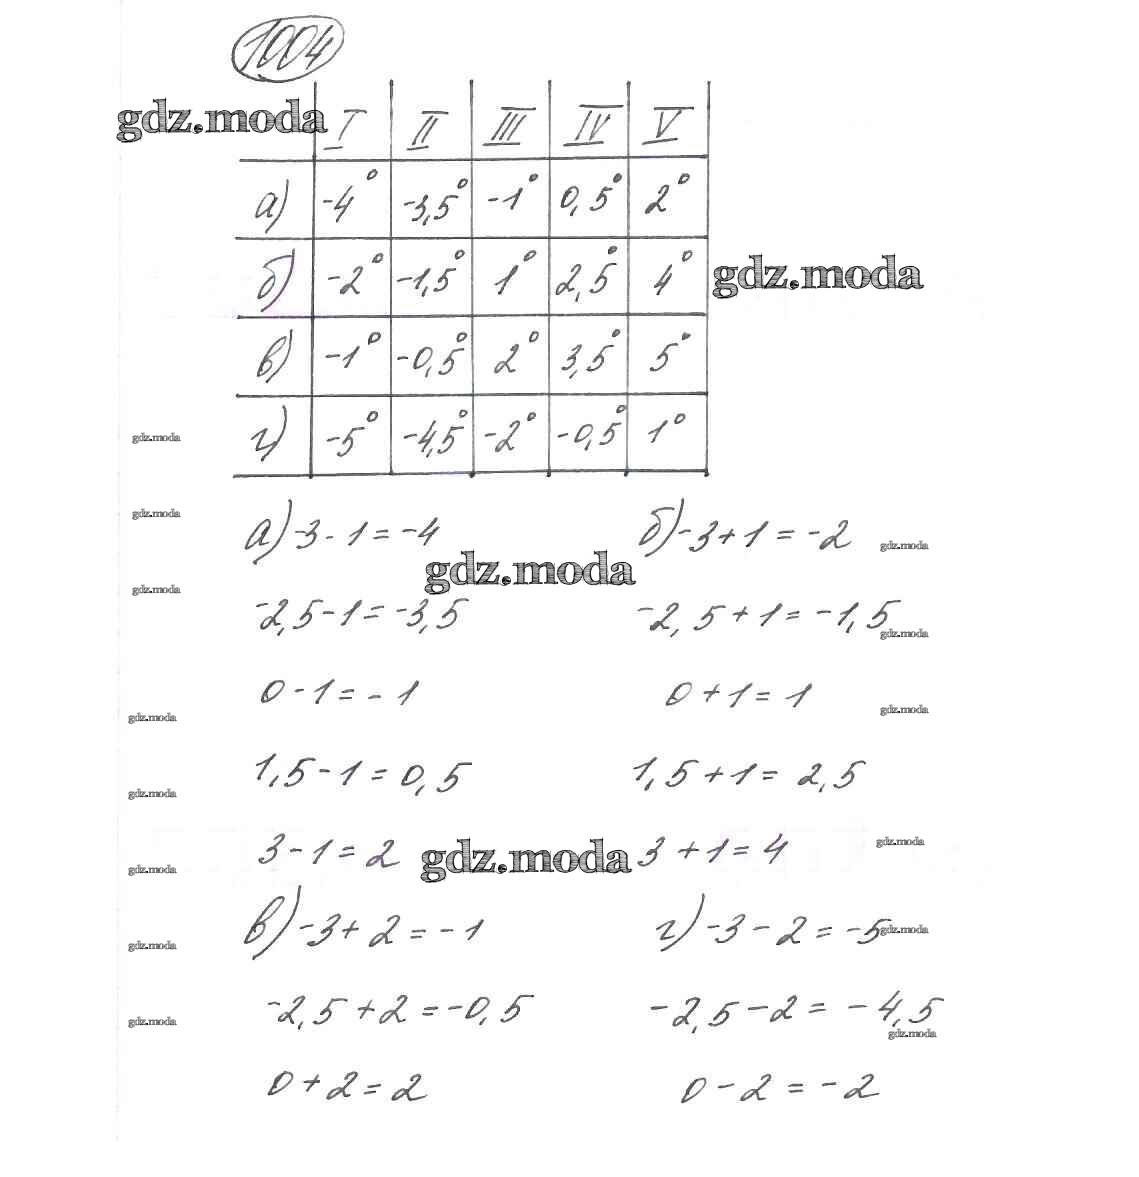 1004
gdz.moda I II III IV V
а) -4° -3,5° -1° 0,5° 2°
б) -2° -1,5° 1° 2,5° 4° gdz.moda
в) -1° -0,5° 2° 3,5° 5°
г) -5° -4,5° -2° -0,5° 1°
gdz.moda
gdz.moda
а) -3-1=-4 б) -3+1=-2
gdz.moda
gdz.moda
gdz.moda
-2,5-1=-3,5 -2,5+1=-1,5
gdz.moda
0-1=-1 0+1=1
gdz.moda
gdz.moda
1,5-1=0,5 1,5+1=2,5
gdz.moda
3-1=2 gdz.moda 3+1=4 gdz.moda
gdz.moda
в) -3+2=-1 г) -3-2=-5 gdz.moda
gdz.moda
-2,5+2=-0,5 -2,5-2=-4,5
gdz.moda
gdz.moda
0+2=2 0-2=-2